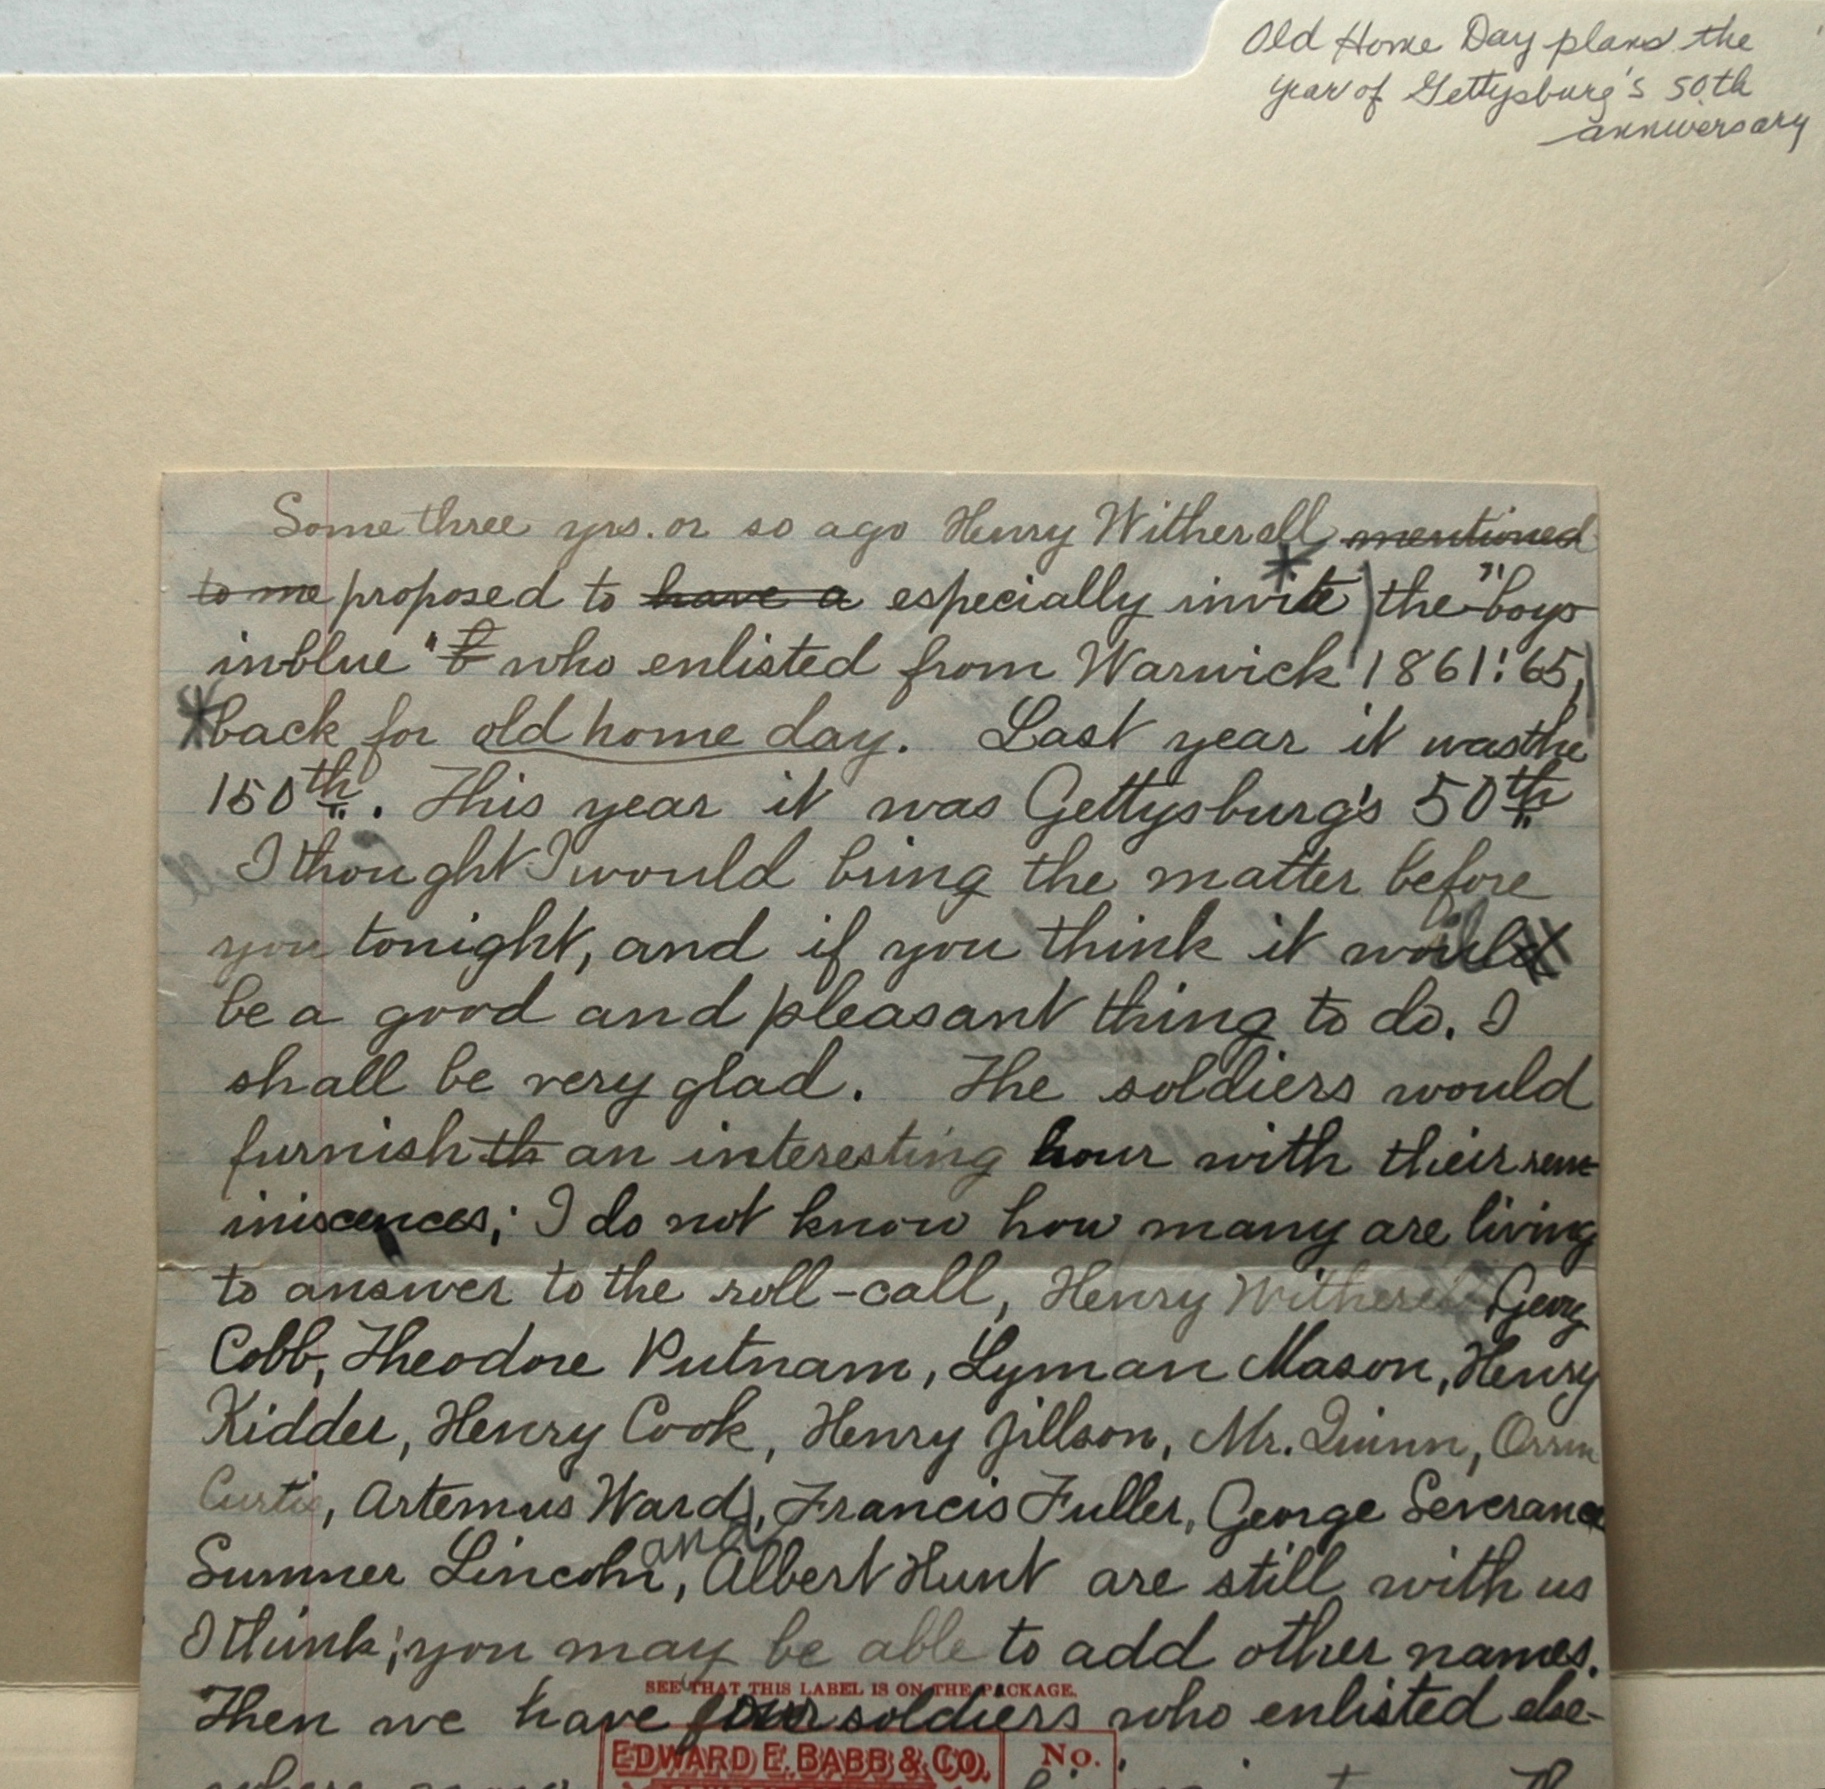 Old Home Day plans the
year of Gettysburg's 50th
anniversary
Some three yrs. or so ago Henry Witherell mentioned
to me proposed to have a especially invite the "boys
in blue" b who enlisted from Warwick 1861:65,
back for old home day. Last year it was the
150th. This year it was Gettysburg's 50th
I thought I would bring the matter before
you tonight, and if you think it would
be a good and pleasant thing to do. I
shall be very glad. The soldiers would
furnish th an interesting hour with their rem
iniscences; I do not know how many are living
to answer to the roll-call, Henry Witherell
Cobb, Theodore Putnam, Lyman Mason, Henry
Kidder, Henry Cook, Henry Jillson, Mr. Quinn, Orrin
Curtis, Artemus Ward, Francis Fuller, George Severance
Sumner Lincoln, and Albert Hunt are still with us
I think; you may be able to add other names.
SEE THAT THIS LABEL IS ON THE PACKAGE.
Then we have four soldiers who enlisted else-
EDWARD E. BABB & CO. No.